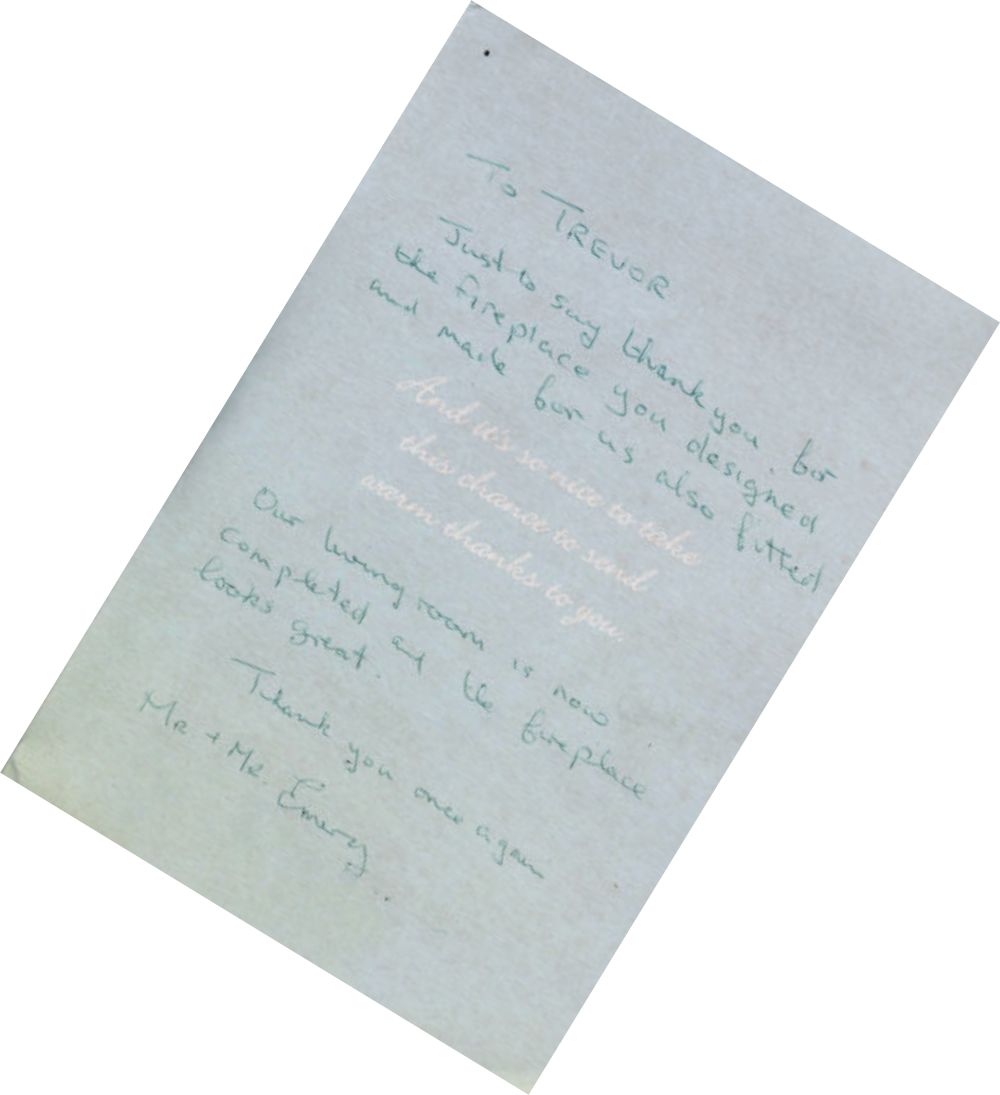 To TREVOR
Just to say thank you for
the fireplace you designed
and made for us also fitted
And it's so nice to take
this chance to send
warm thanks to you.
Our living room is now
completed and the fireplace
looks great.
Thank you once again
Mr + Mr. Emery